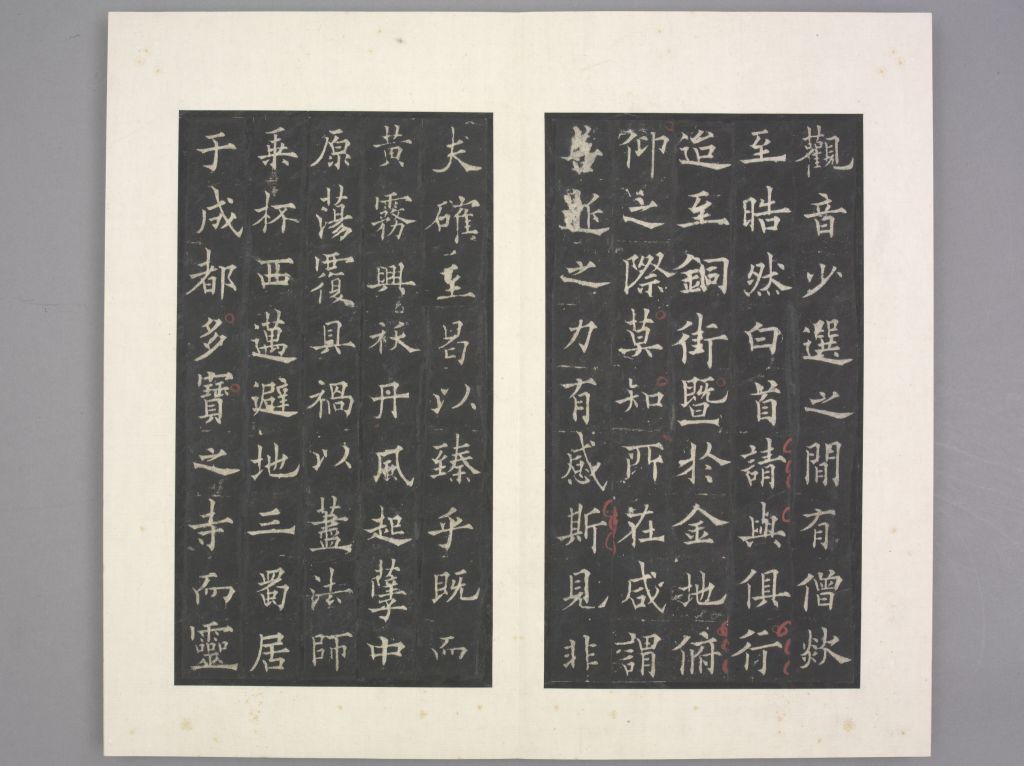 觀音少選之閒有僧欻
至晧然白首請與俱行
迨至銅街暨於金地俯
仰之際莫知所在咸謂
善逝之力有感斯見非
夫確至曷以臻乎既而
黃霧興祅丹風起孽中
原蕩覆具禍以蓋法師
乘杯西邁避地三蜀居
于成都多寶之寺而靈